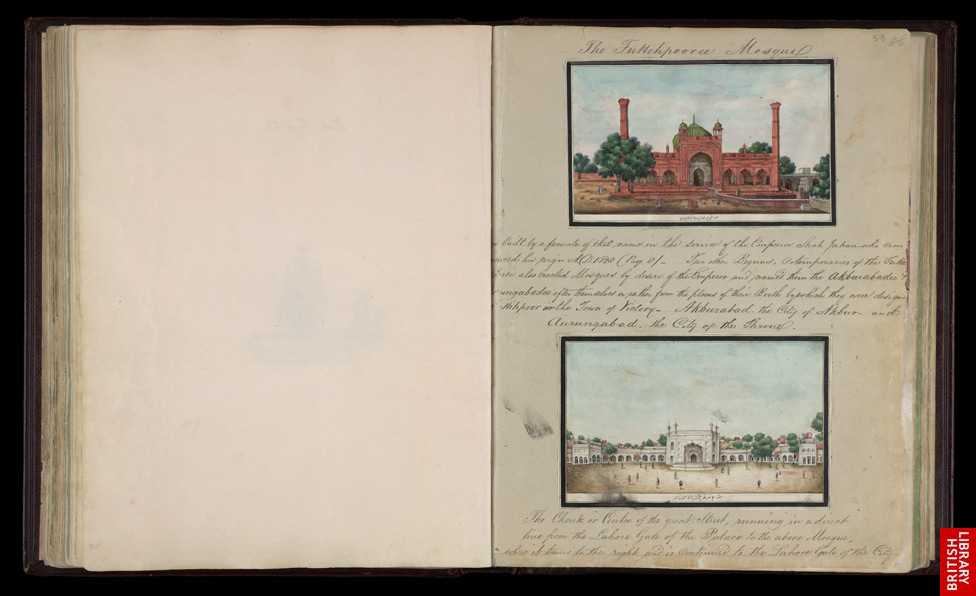 59 86
The Futtehpooree Mosque
s built by a female of that name in the service of the Emperor Shah Jahan who com
his reign A.D. (Pag
Two other Begums, Cotemporaries of the Futte
also erected Mosques by desire of the Emperor and named them the Akburabadee
ungabadee after themselves or rather from the places of their Birth by which they were design
ttehpoor or the Town of Victory_ Akburabad the City of Akbur and
Aurungabad the City of the Throne.
The Chouk or Centre of the great Street, running in a direct
line from the Lahore Gate of the Palace to the above Mosque,
where it turns to the right, and is continued to the Lahore Gate of the City.
BRITISH
LIBRARY